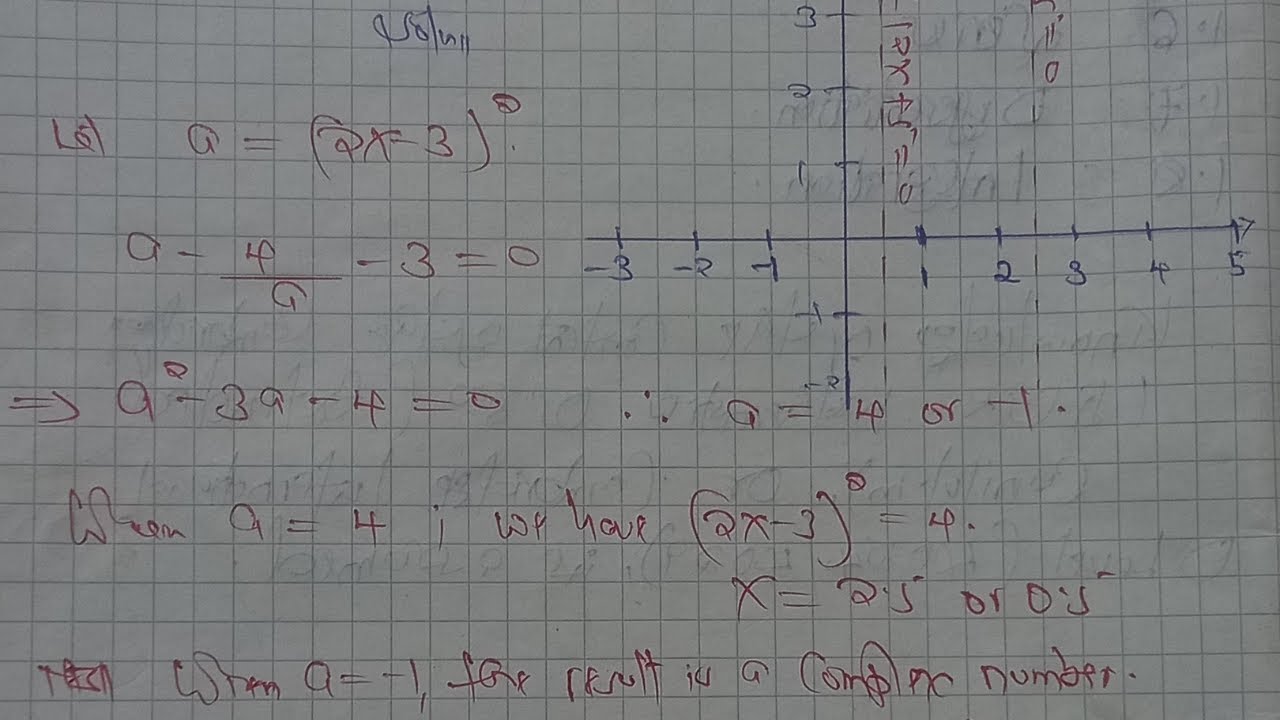 Soln
Let a = (2x-3)².
a - 4/a - 3 = 0
⇒ a² - 3a - 4 = 0 ∴ a = 4 or -1.
When a = 4 ; we have (2x-3)² = 4.
x = 2.5 or 0.5
When a = -1, the result is a Complex number.
3
2
1
-3 -2 -1 1 2 3 4 5
-1
-2
x = 0.5
= 0